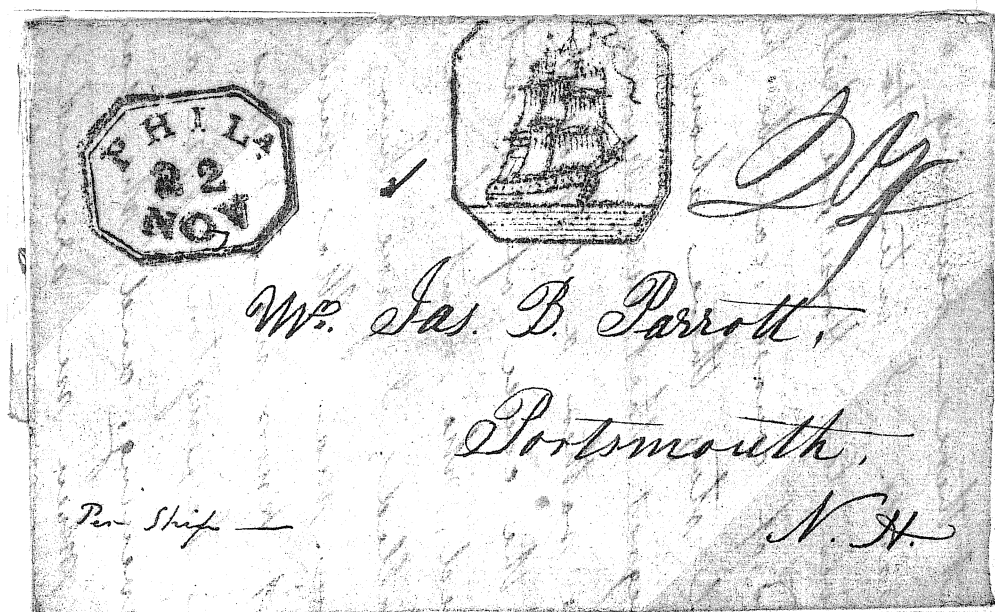 PHILA
22
NOV
Mr. Jas. B. Parrott,
Portsmouth,
N. H.
Per Ship —